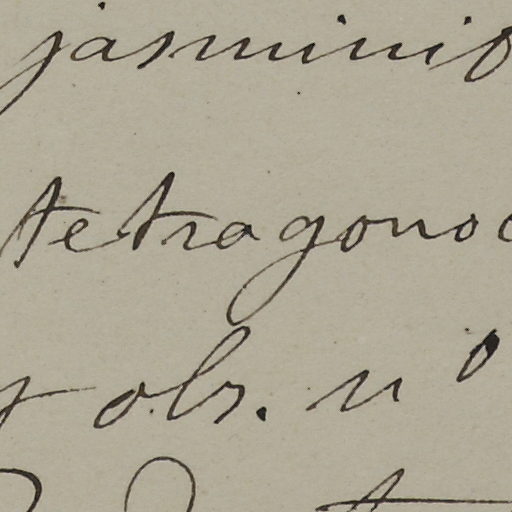 jasminif
tetragonoc
obs. nº